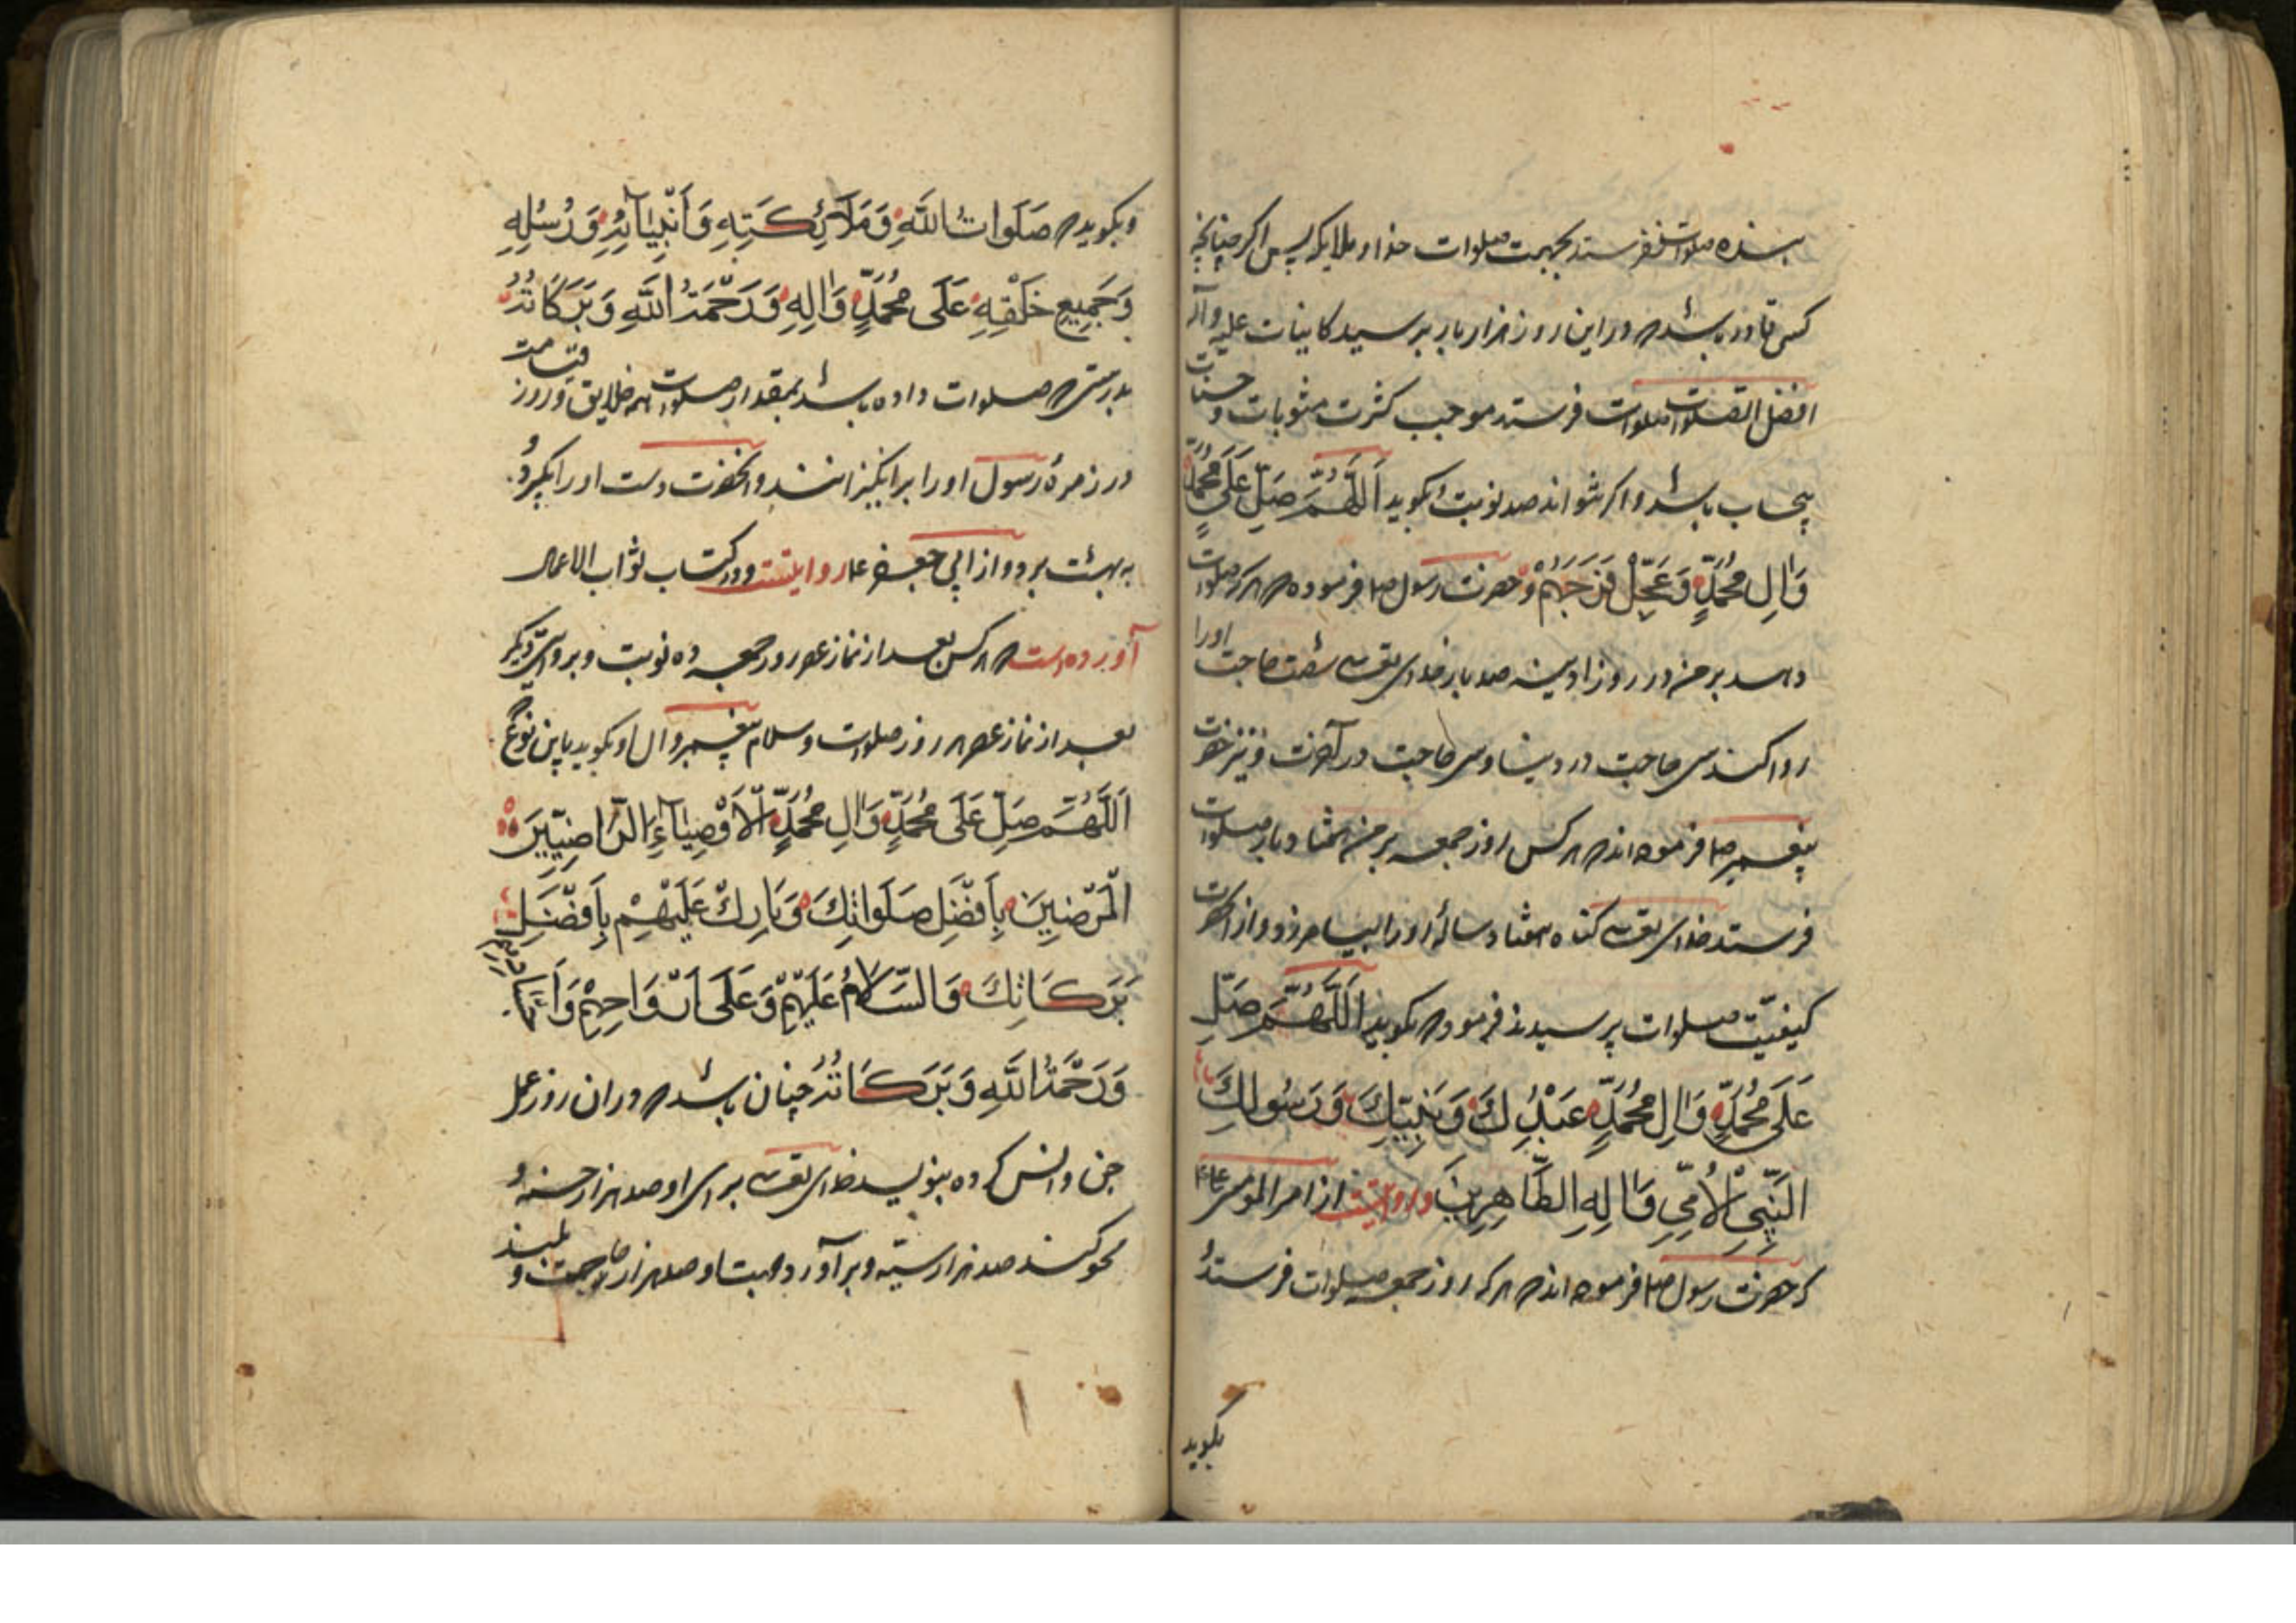 بنده صلوات نفرستد بجهت صلوات خدا و ملایکه پس اکر چنانچه
کسی قادر باشد که در این روز هزار بار بر سید کاینات علیه و آله
افضل الصلوات صلوات فرستد موجب کثرت مثوبات و حسنات
بیحساب باشد و اکر نتواند صد نوبت بکوید اَللّٰهُمَّ صَلِّ عَلَى مُحَمَّدٍ
وَاٰلِ مُحَمَّدٍ وَعَجِّلْ فَرَجَهُمْ و حضرت رسول ص فرموده که هر که صلوات
دهد بر من در روز ادینه صد بار خدای تعالی شصت حاجت اورا
روا کند سی حاجت در دنیا و سی حاجت در آخرت و نیز حضرت
پیغمبر ص فرموده اند که هر کس روز جمعه بر من هشتاد بار صلوات
فرستد خدای تعالی کناه هشتاد ساله اورا بیامرزد و از آنحضرت
کیفیّت صلوات پرسیدند فرمود که بکوید اَللّٰهُمَّ صَلِّ
عَلَى مُحَمَّدٍ وَاٰلِ مُحَمَّدٍ عَبْدِكَ وَنَبِيِّكَ وَرَسُولِكَ
النَّبِيِّ الْاُمِّيِّ وَاٰلِهِ الطَّاهِرِينَ و روایتست از امیرالمؤمنین
که حضرت رسول ص فرموده اند که هر که روز جمعه صلوات فرستد
بکوید
و بکوید که صَلَوَاتُ اللّٰهِ وَمَلَائِكَتِهِ وَاَنْبِيَائِهِ وَرُسُلِهِ
وَجَمِيعِ خَلْقِهِ عَلَى مُحَمَّدٍ وَاٰلِهِ وَرَحْمَةُ اللّٰهِ وَبَرَكَاتُهُ
بدرستی که صلوات داده باشد بمقدار صلوات همه خلایق و روز قیامت
در زمرهٔ رسول اورا برانکیزانند و آنحضرت دست اورا بکیرد
به بهشت برد و از ابی جعفر ع روایتست و در کتاب ثواب الاعمال
آورده است که هر کس بعد از نماز عصر روز جمعه ده نوبت و بروایتی دیکر
بعد از نماز عصر هر روز صلوات و سلام پیغمبر و ال او بکوید باین نوع
اَللّٰهُمَّ صَلِّ عَلَى مُحَمَّدٍ وَاٰلِ مُحَمَّدٍ الْاَوْصِيَاءِ الرَّاضِيِينَ
الْمَرْضِيِينَ بِاَفْضَلِ صَلَوَاتِكَ وَبَارِكْ عَلَيْهِمْ بِاَفْضَلِ
بَرَكَاتِكَ وَالسَّلَامُ عَلَيْهِمْ وَعَلَى اَرْوَاحِهِمْ وَاَجْسَادِهِمْ
وَرَحْمَةُ اللّٰهِ وَبَرَكَاتُهُ چنان باشد که در ان روز عمل
جن و انس کرده بنویسد خدای تعالی برای او صد هزار حسنه و
محو کند صد هزار سیئه و برآورد او صد هزار حاجت و بلند